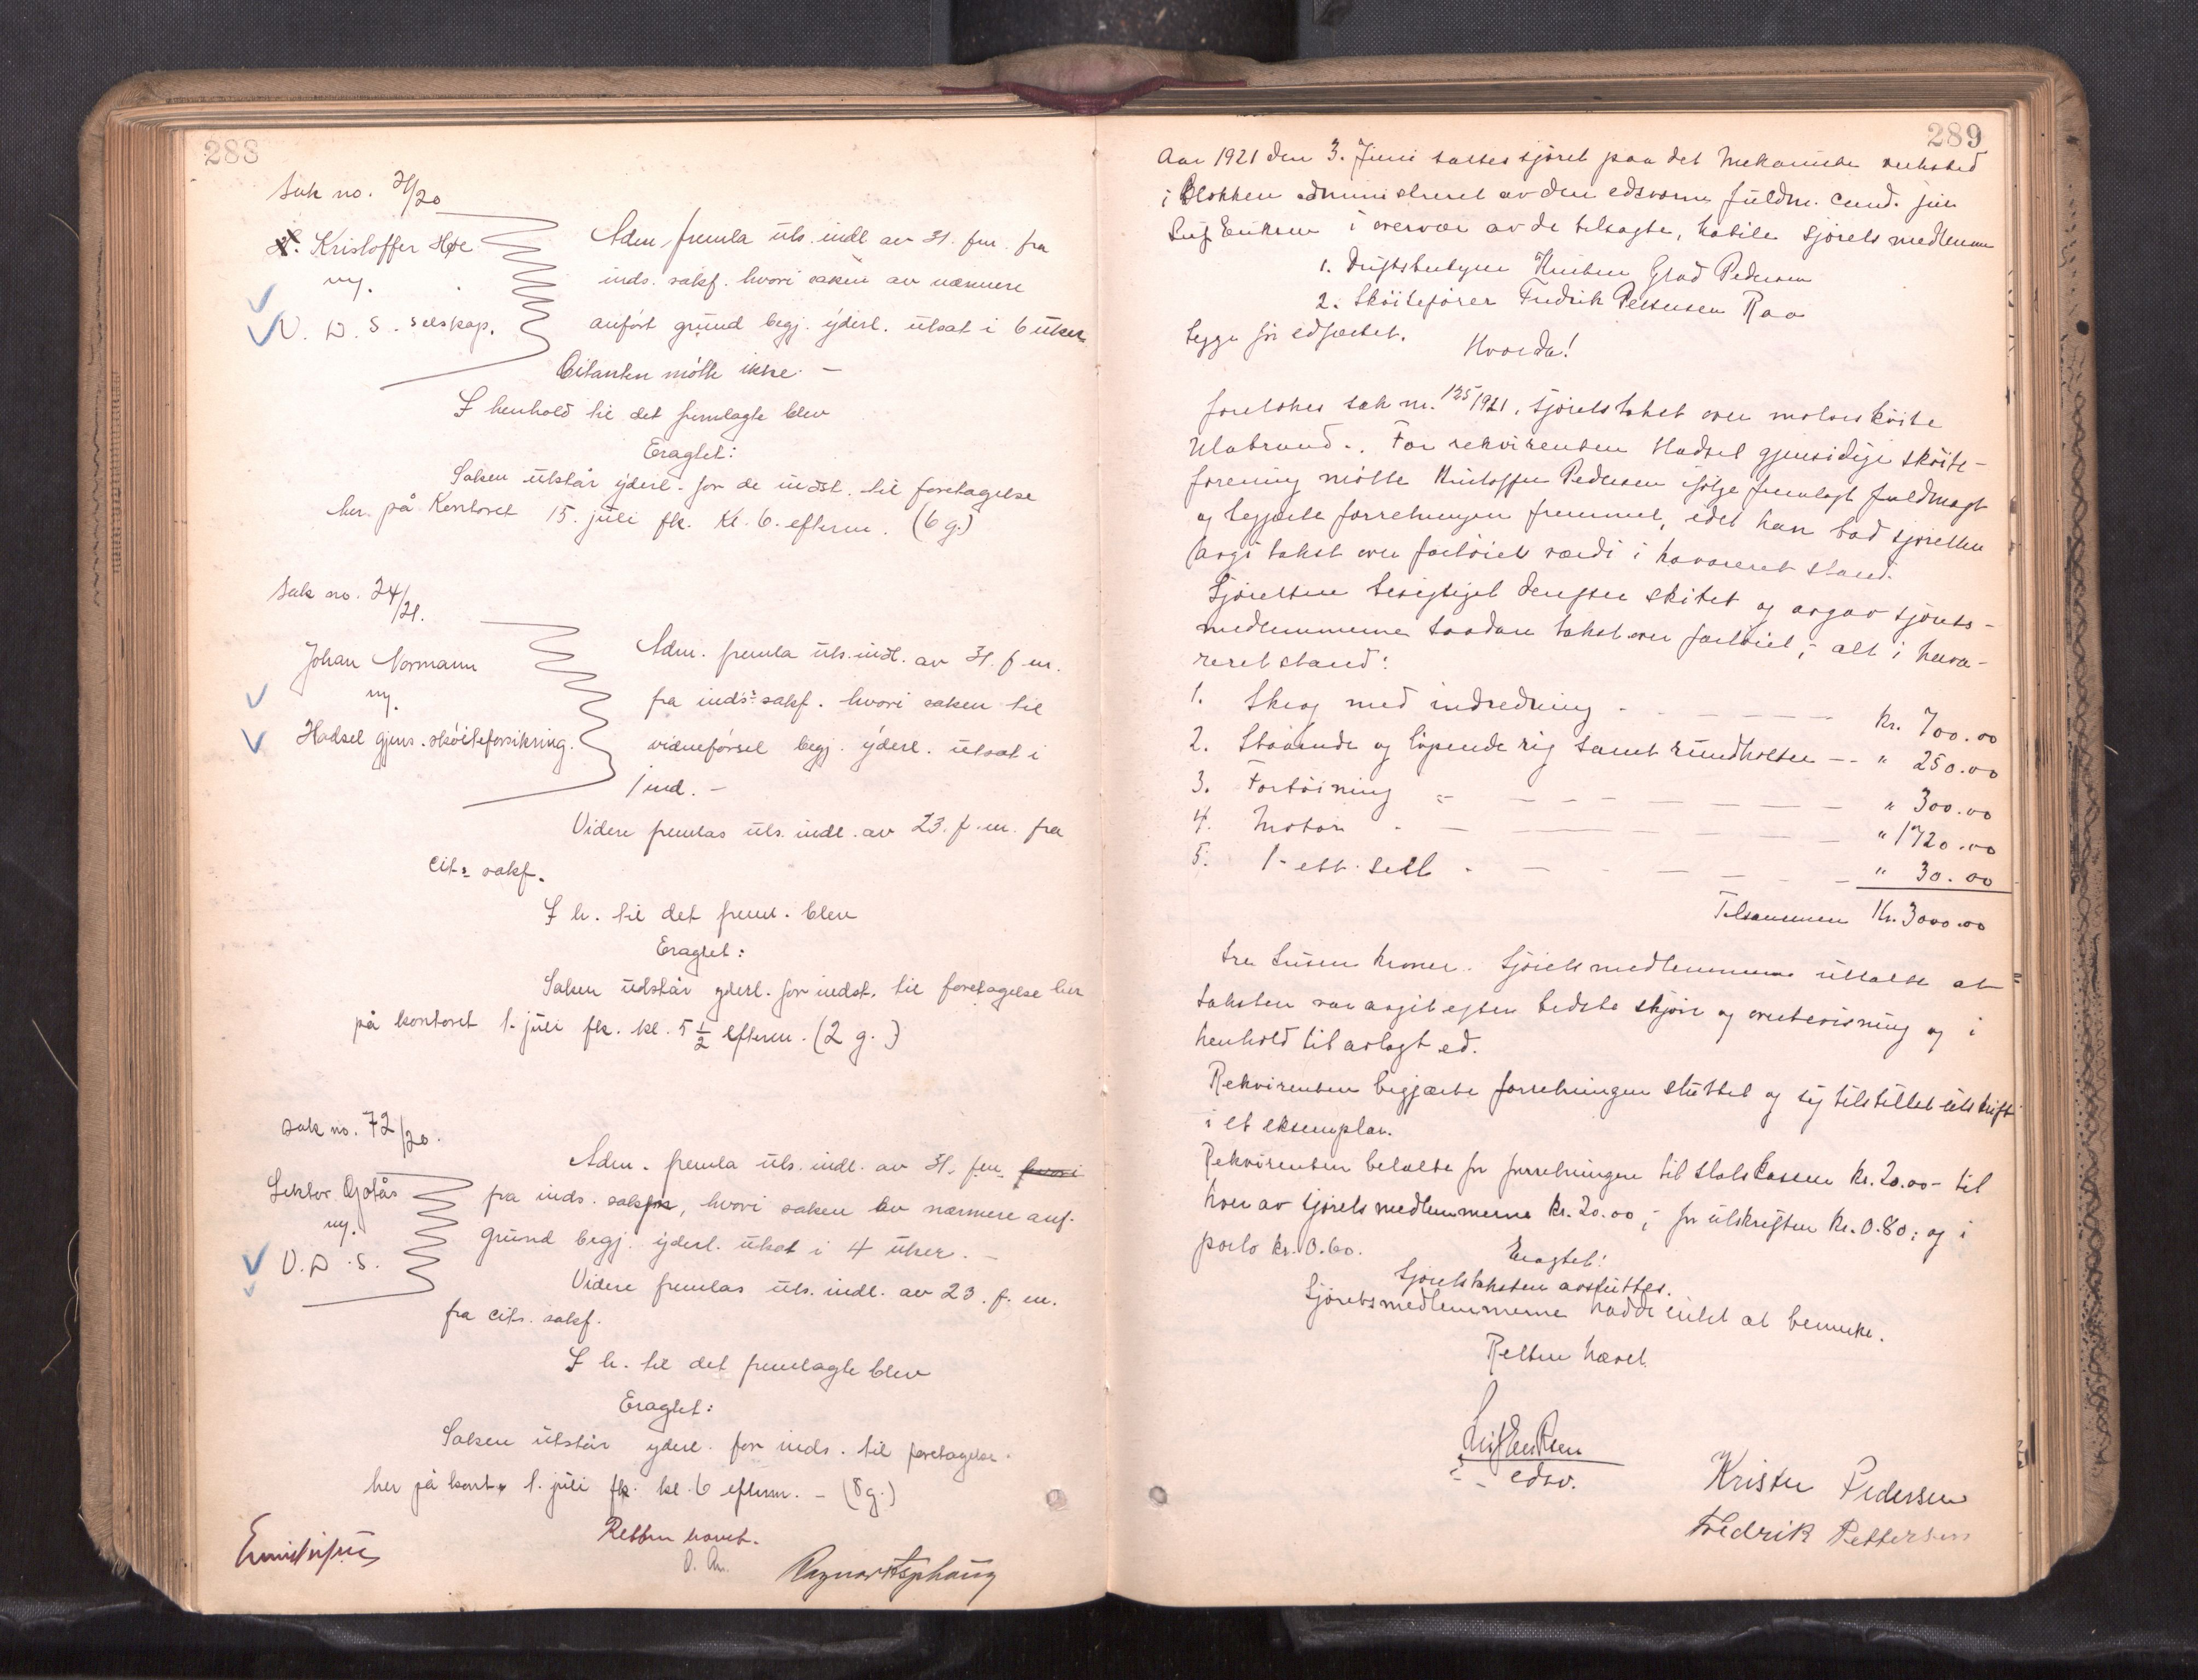 288
Sak no. 71/20
Kristoffer Høe
mj.
V. D. S. selskap.
Adm. fremla uts. indl av 31. f.m. fra
inds. sakf. hvori saken av nærmere
anført grund begj. yderl. utsat i 6 uker
Citanten møtte ikke. —
I henhold til det fremlagte blev
Eragtet:
Saken utstår yderl. for de indst. til foretagelse
her på Kontoret 15. juli fk. Kl. 6. efterm. (6 g.)
Sak no. 24/21.
Johan Normann
mj.
Hadsel gjens. skøiteforsikring.
Adm. fremla uts. indl. av 31. f.m.
fra inds: sakf. hvori saken til
vidneførsel begj. yderl. utsat i
1 md. —
Videre fremlas uts. indl. av 23. f.m. fra
cit: sakf.
I h. til det freml. blev
Eragtet:
Saken udstår yderl. for indst. til foretagelse her
på kontoret 1. juli fk. kl. 5 1/2 efterm. (2 g.)
Sak no. 72/20.
Lektor
mj.
V. D. S.
Adm. fremla uts. indl. av 31. f.m. hvori
fra inds. sakf., hvori saken av nærmere anf.
grund begj. yderl. utsat i 4 uker. —
Videre fremlas uts. indl. av 23. f.m.
fra cits. sakf.
I h. til det fremlagte blev
Eragtet:
Saken utstår yderl. for inds. til foretagelse
her på kont. 1. juli fk. kl. 6 efterm. — (8 g.)
Retten hævet.
289
Aar 1921 den 3. Juni sattes sjøret paa det mekaniske verksted
i Blokken administreret av den edsvorne fuldm. cand. jur
Leif Eriksen i overvær av de tilsagte, habile sjøretsmedlemmer
1. Driftsbestyrer Kristen Grad Pedersen
2. Skøitefører Fredrik Pettersen Raa
begge før edfæstet.
Hvorda!
foretokes sak nr. 125/1921, sjøretstakst over motorskøite
Ulabrand. For rekvirenten Hadsel gjensidige skøite-
forening møtte Kristoffer Pedersen ifølge fremlagt fuldmagt
og begjærte forretningen fremmet, idet han bad sjøretten
avgi takst over fartøiets værdi i havareret stand.
Sjøretten besigtiget derefter skibet og avgav sjørets-
medlemmerne saadan takst over fartøiet, — alt i hava-
reret stand:
1. Skrog med indredning - — — — — kr. 700.00
2. Staaende og løpende rig samt rundholter — - " 250.00
3. Fortøining — — — — — — " 300.00
4. Motor - — — — " 1720.00
5. 1 - ett seil - — — — — " 30.00
Tilsammen Kr. 3000.00
tre tusen kroner. Sjøretsmedlemmerne uttalte at
taksten var avgit efter bedste skjøn og overbevisning og i
henhold til avlagt ed.
Rekvirenten begjærte forretningen sluttet og sig tilstillet utskrift
i et eksemplar.
Rekvirenten betalte for forretningen til statskassen kr. 20.00 - til
hver av sjøretsmedlemmerne kr. 20.00, - for utskriften kr. 0.80; og i
porto kr. 0.60.
Eragtet:
Sjøretstaksten avsluttes.
Sjøretsmedlemmerne hadde intet at bemerke.
Retten hævet.
Leif Eriksen
edsv.
Kristen Pedersen
Fredrik Pettersen